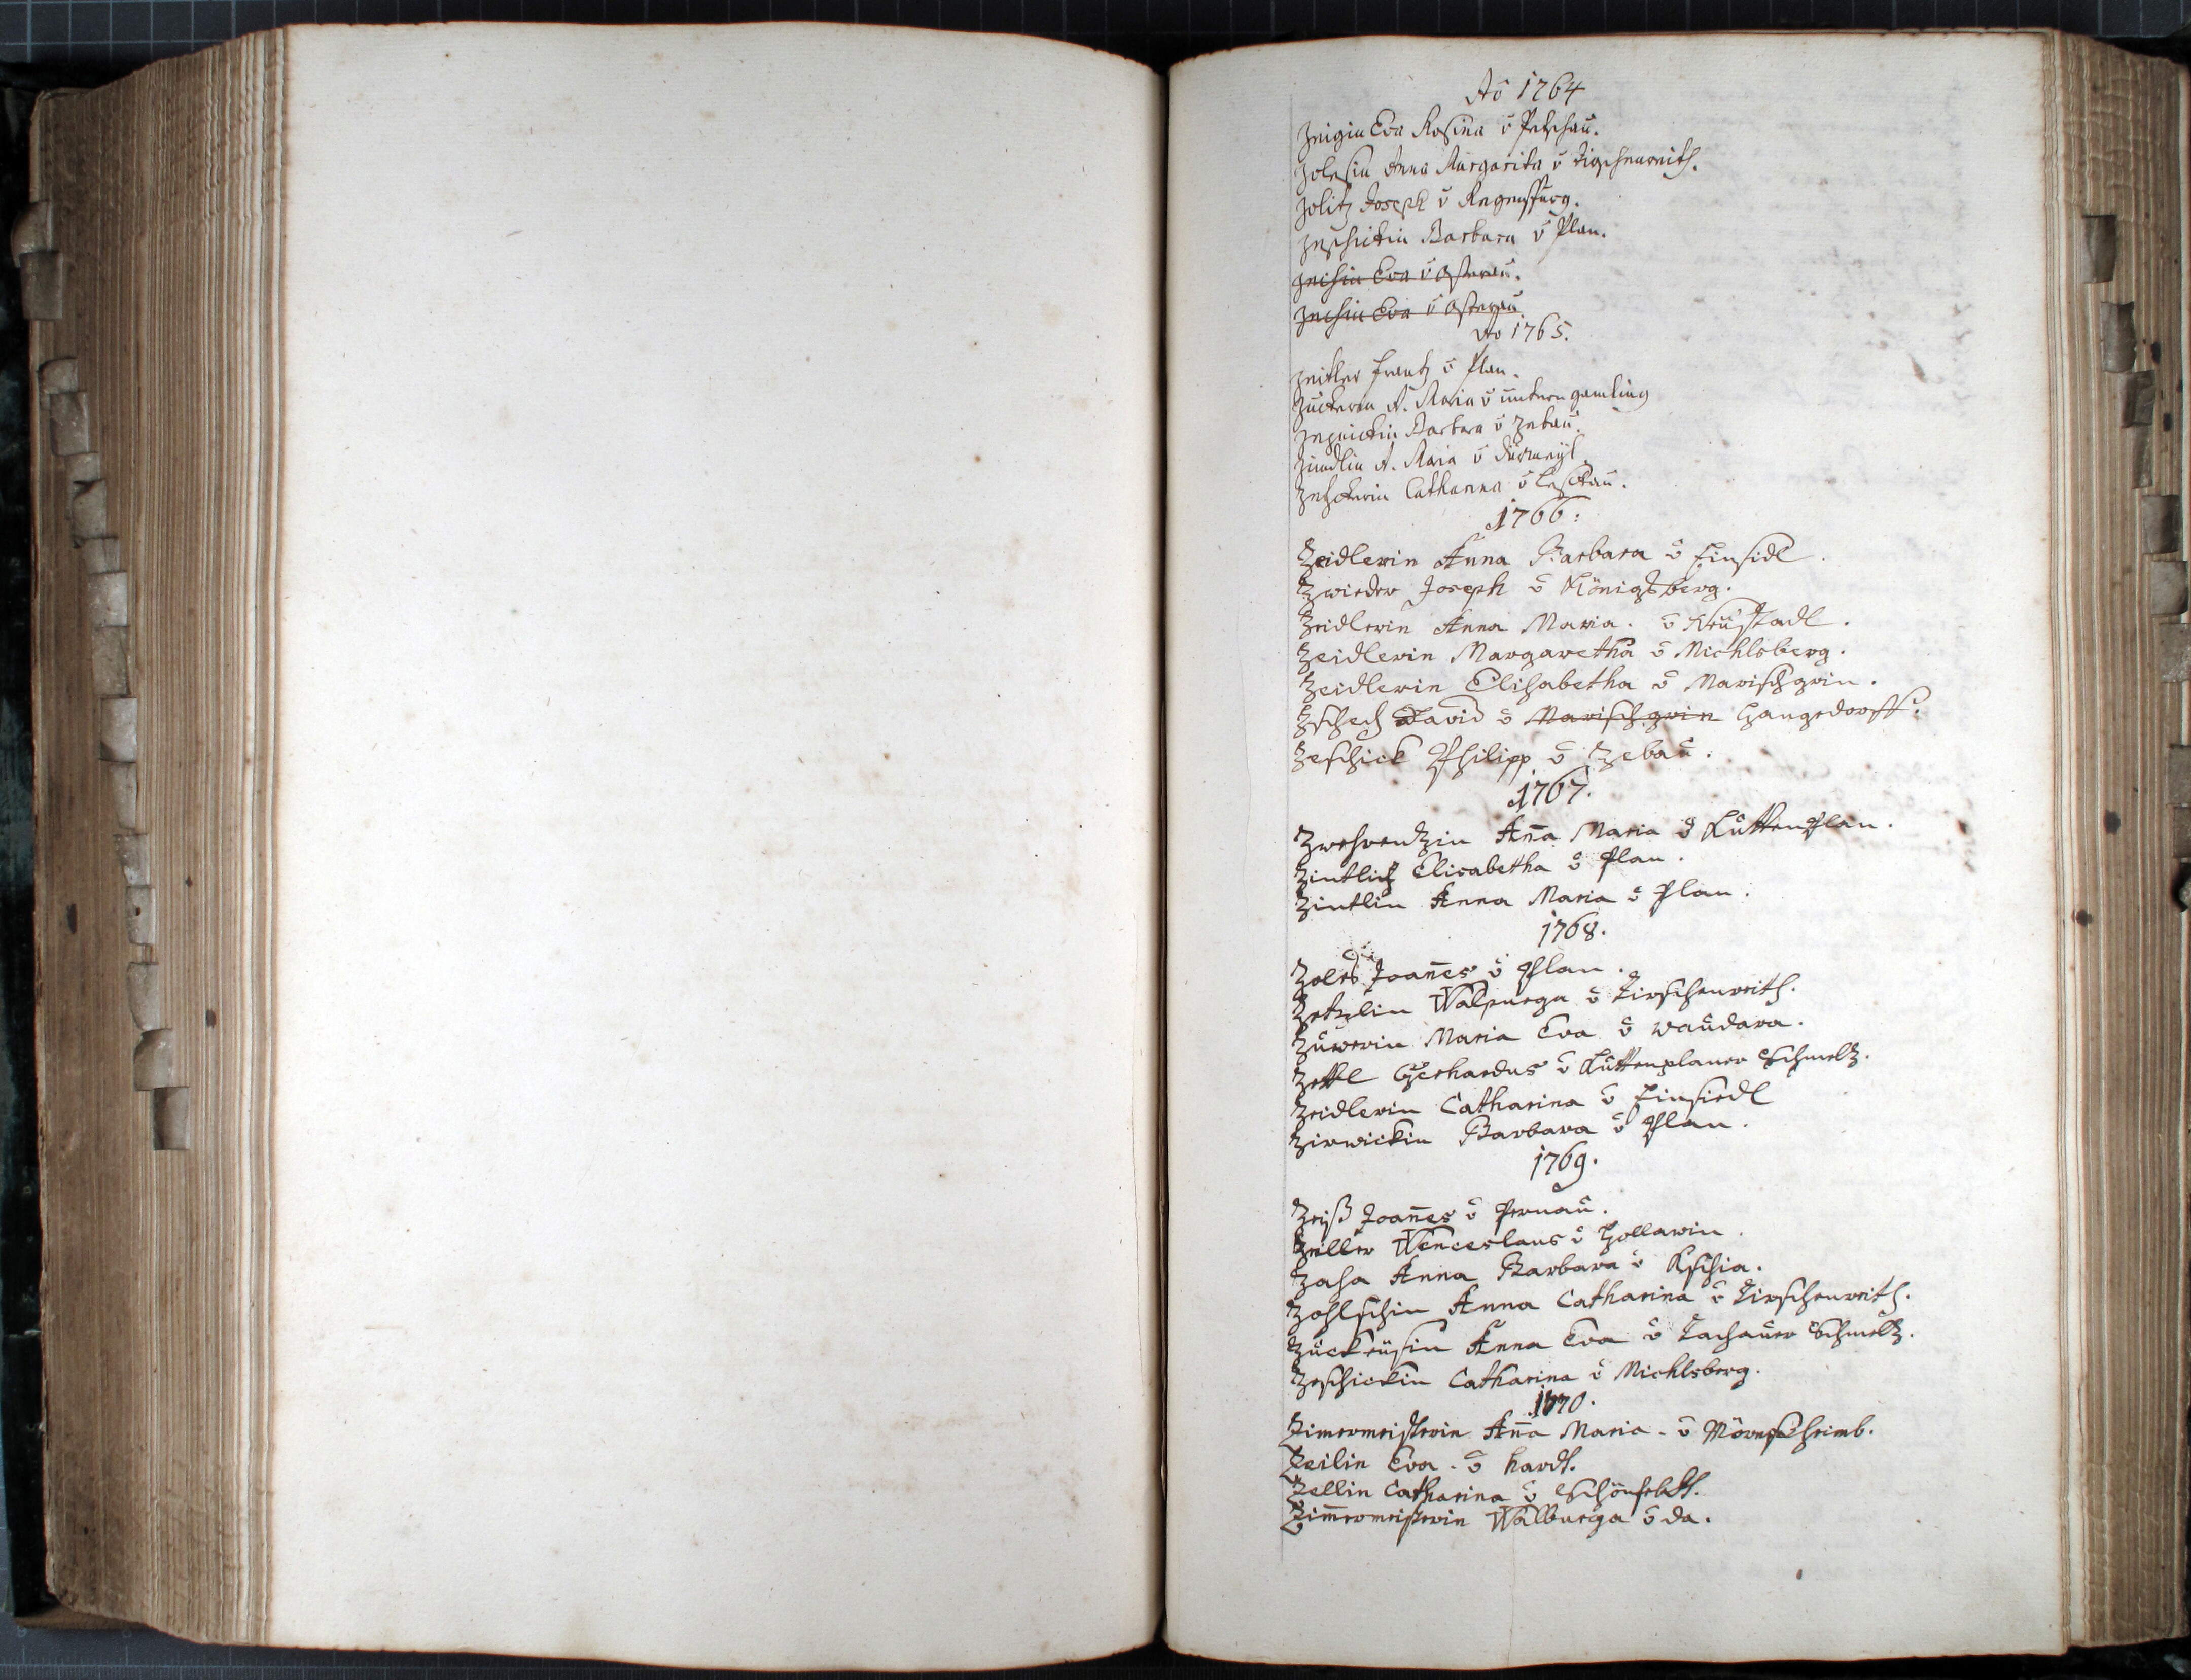 Aõ 1764
Zeigin Eva Rosina v̄ Petschaŭ.
Zolesin Anna Margarita v̄ Tirschenreith.
Zolitz Joseph v̄ Regenspurg.
Zeschickin Barbara v̄ Plan.
Zechin Eva v̄ Osteraŭ.
Zechin Eva v̄ Osteraŭ
Ao 1765.
Zeitler Frantz v̄ Plan.
Zŭckerin A. Maria v̄ ŭntern gamling
Barbara v̄ Zebaŭ.
Zindlin A. Maria v̄
Catharina v̄
1766:
Zeidlerin Anna Barbara v̄ Einsidl.
Zwieder Joseph v̄ Königsberg.
Zeidlerin Anna Maria. v̄ Neŭstadl.
Zeidlerin Margaretha v̄ Michlsberg.
Zeidlerin Elisabetha v̄ Marischgrin.
Zschech David v̄ Marischgrin Hangsdorff.
Zeschick Philipp v̄ Zebaŭ.
1767.
Zwehrentzin Aña Maria v̄ Kŭttenplan.
Zintlin Elisabetha v̄ Plan.
Zintlin Anna Maria v̄ Plan.
1768.
Joañes v̄ Plan.
Zetzlin Walpurga v̄ Tirschenreith.
Maria Eva v̄ Waŭdara.
Zettl Gerhardus v̄ Kŭttenplaner Schmeltz.
Zeidlerin Catharina v̄ Einsiedl
Zirwickin Barbara v̄ Plan.
1769.
Zeiß Joañes v̄ Pernaŭ.
Zeiller Wenceslaus v̄ Gollawin.
Zaha Anna Barbara v̄ Kschia.
Zohlschin Anna Catharina v̄ Tirschenreith.
Zŭckrŭsin Anna Eva v̄ Tachaŭer Schmeltz.
Zeschickin Catharina v̄ Michlsberg.
1770.
Zimermeisterin Aña Maria - v̄ Mörnsheimb.
Zeilin Eva - v̄ hardt.
Zellin Catharina v̄ Schönfeldt.
Zim̄ermeisterin Walburga v̄ da.